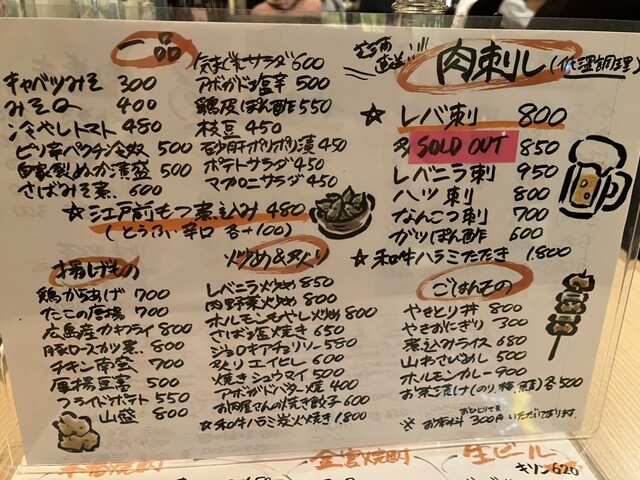 一品
キャベツみそ 300
みそQ 400
冷やしトマト 480
ピリ辛ペクチン冷奴 500
自家製めか漬盛 500
さばみそ煮 600
気まぐれサラダ 600
アボガド塩辛 500
鶏皮ぽん酢 550
枝豆 450
砂肝ポリポリ漬 450
ポテトサラダ 450
マカロニサラダ 450
☆江戸前もつ煮込み 480
(とうふ・辛口 各+100)
直送!!
肉刺し(低温調理)
☆レバ刺 800
SOLD OUT 850
レバニラ刺 950
ハツ刺 800
なんこつ刺 700
ガツぽん酢 600
☆和牛ハラミたたき 1,800
揚げもの
鶏からあげ 700
たこの唐揚 700
広島産カキフライ 800
豚ロースカツ煮 800
チキン南蛮 700
厚揚豆富 500
フライドポテト 550
山盛 800
炒め&炙り
レバニラ炒め 850
肉野菜炒め 800
ホルモンもやし炒め 800
さばの塩焼き 650
ジョロキアチョリソー 580
炙りエイヒレ 600
焼きシュウマイ 500
アボガドバター焼 400
お肉屋さんの焼き餃子 600
☆和牛ハラミ炭火焼き 1,800
ごはんもの
やきとり丼 800
やきおにぎり 300
煮込みライス 680
山わさびめし 500
ホルモンカレー 900
お茶漬け(のり 梅 鮭)各500
※お通し料 おひとりさま 300円いただいております。
金宮焼酎
生ビール
キリン 620